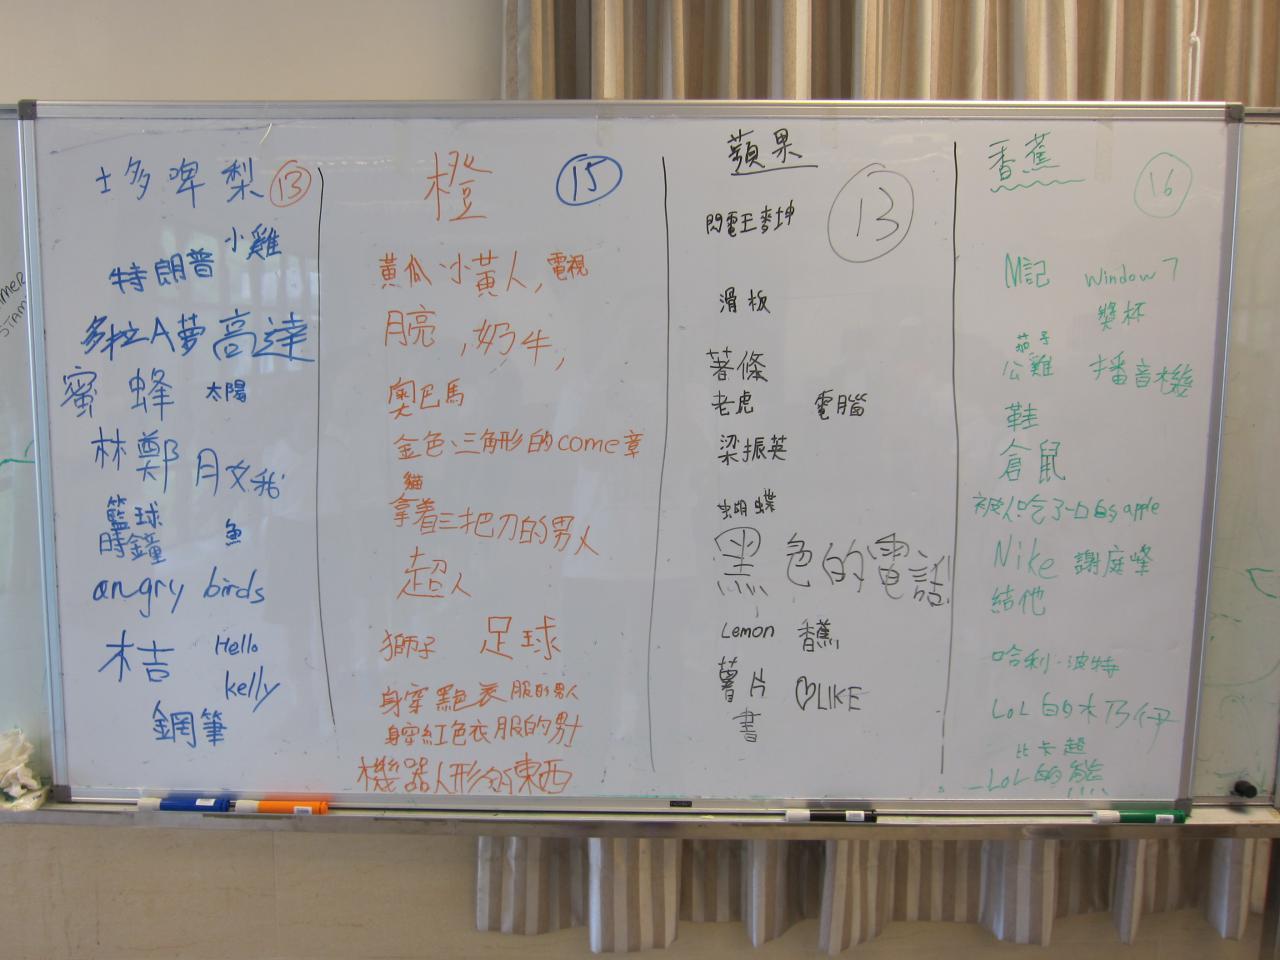 士多啤梨 13
小雞
特朗普
多拉A夢 高達
蜜蜂 太陽
林鄭月文我
籃球
時鐘 魚
angry birds
木吉 Hello
kelly
鋼筆
橙 15
黃瓜、小黃人,電視
月亮,奶牛,
奧巴馬
金色、三角形的come章
貓
拿着三把刀的男人
超人
獅子 足球
身穿黑色衣服的男人
身穿紅色衣服的男士
機器人形的東西
蘋果
13
閃電王麥坤
滑板
薯條
老虎 電腦
梁振英
蝴蝶
黑色的電話
Lemon 香蕉
薯片 ♡LIKE
書
香蕉 16
M記 Window 7
獎杯
茄子
公雞 播音機
鞋
倉鼠
被人吃了一口的apple
Nike 謝庭峰
結他
哈利·波特
LoL的木乃伊
比卡超
LoL的熊